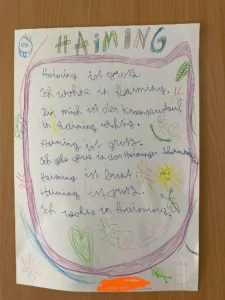 HAiMING
Haiming ist groß.
Ich wohne in Haiming.
Für mich ist der
in Haiming wichtig.
Haiming ist groß.
Ich gehe gerne in das Haiminger
Haiming ist bunt.
Haiming ist groß.
Ich wohne in Haiming.